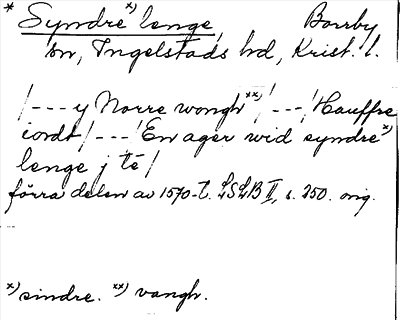 * Syndre x) lenge, Borrby
sn, Ingelstads hd, Krist. l.
/---y Norre wongh xx) /---/ Hauffre
iordt /---/ En ager wid syndre x)
lenge j tē /
förra delen av 1570-t. LSLB II, s. 250. orig.
x) sindre. xx) vangh.